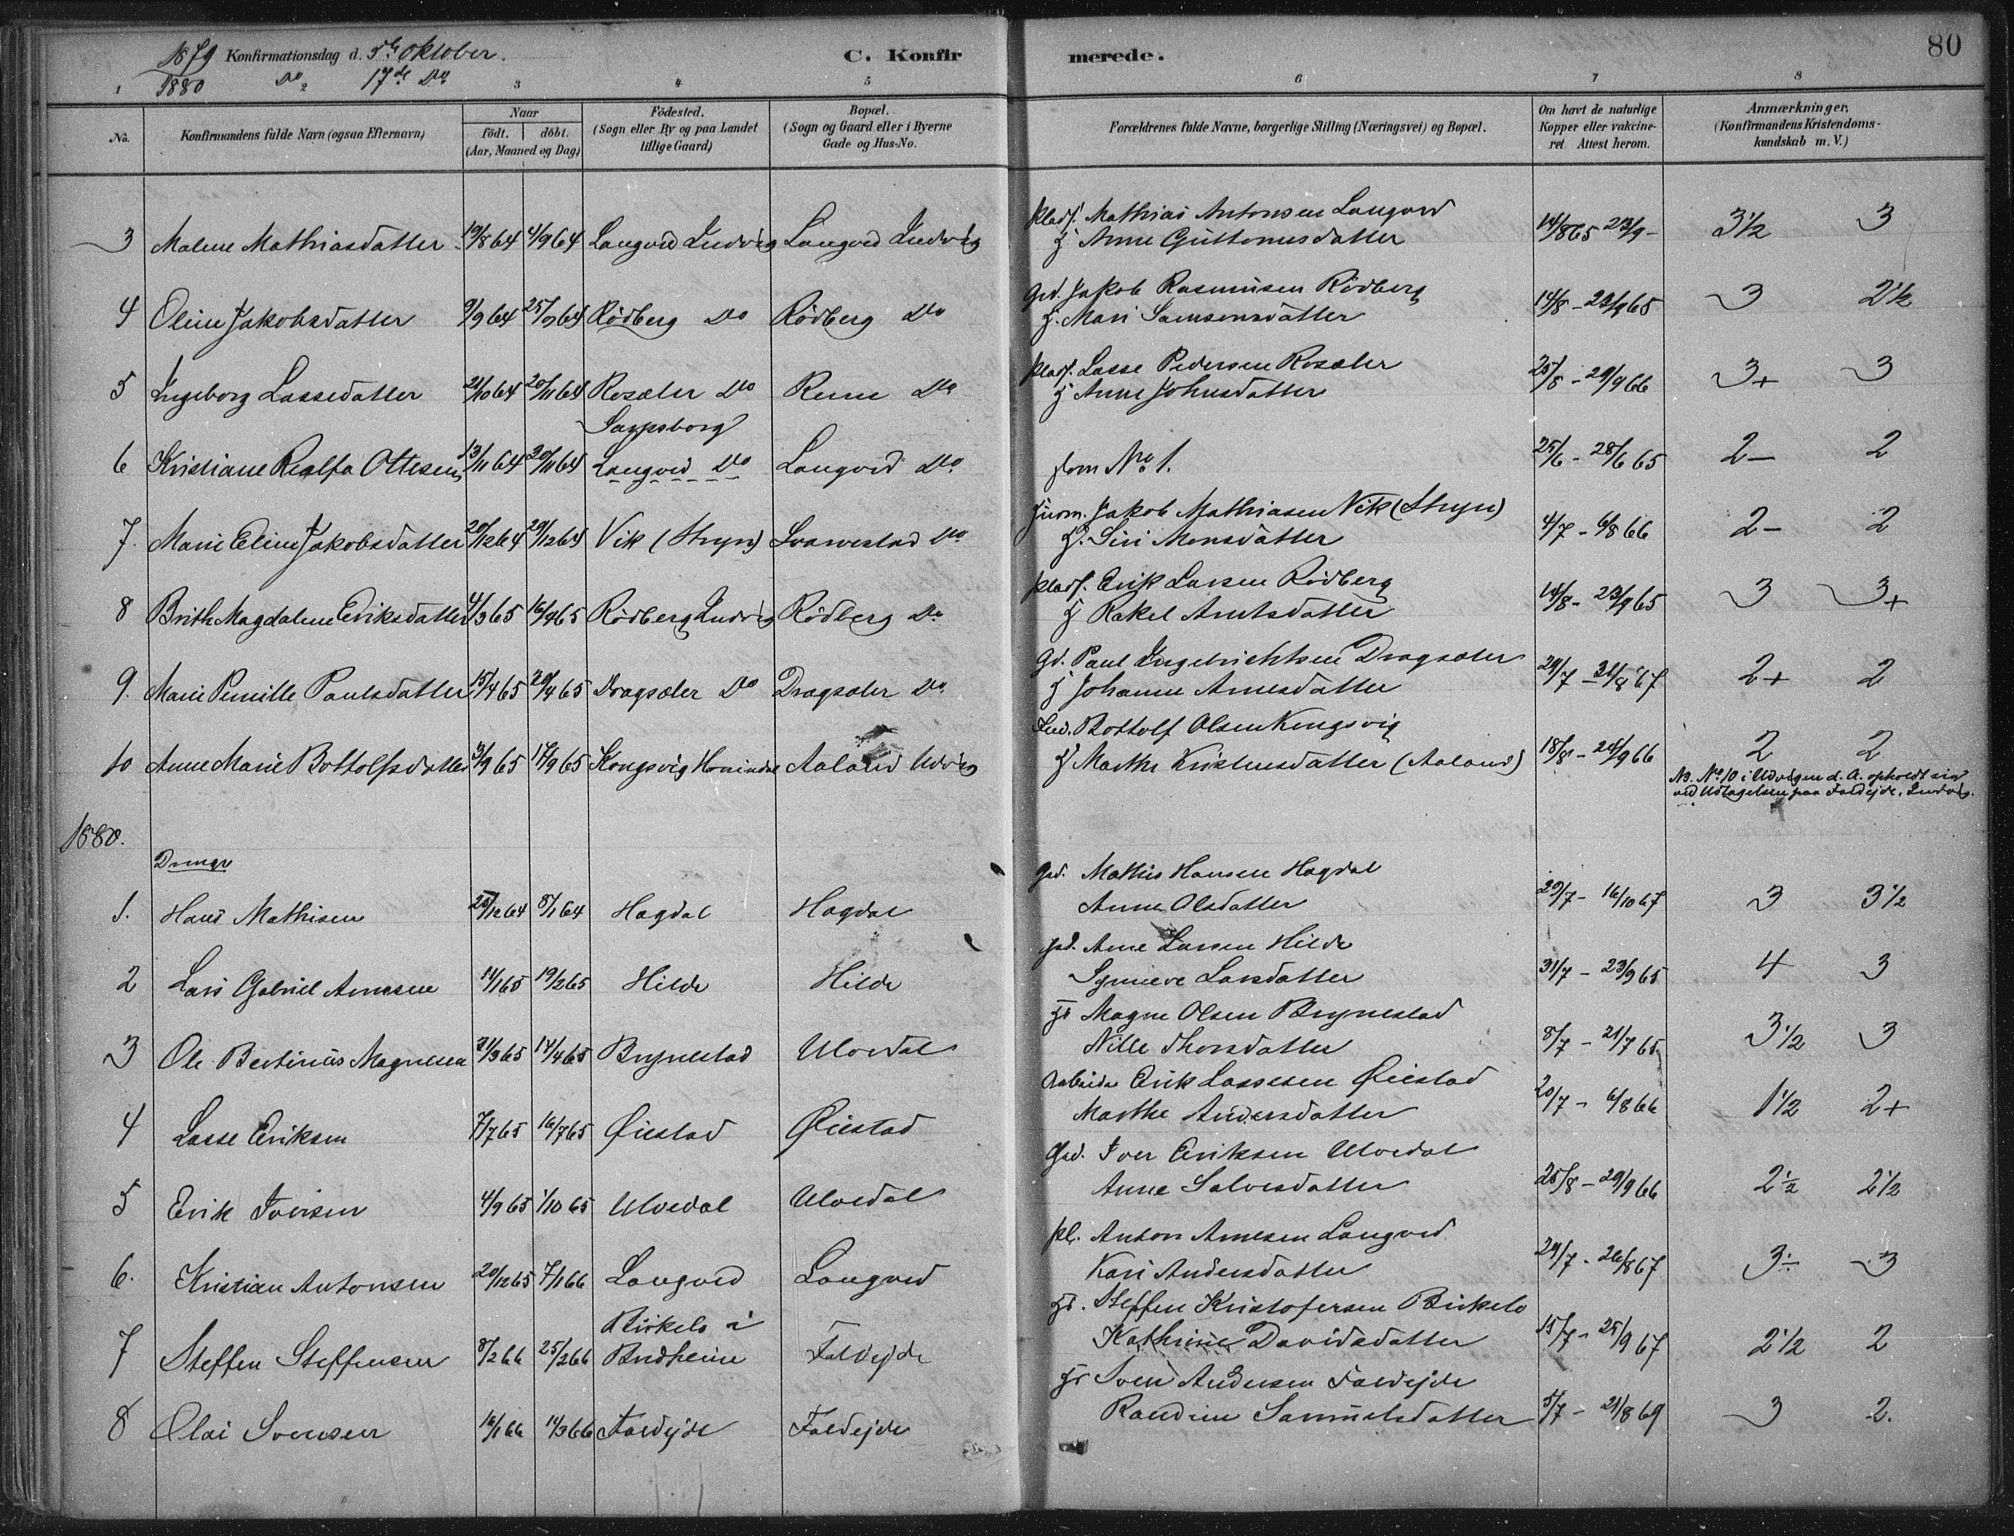 1879 Konfirmationsdag d. 5te Oktober.
1880 Do 17de Do
C. Konfirmerede.
80
1 2 3 4 5 6 7 8
No.
Konfirmandens fulde Navn (ogsaa Efternavn)
Naar
født. døbt.
(Aar, Maaned og Dag)
Fødested.
(Sogn eller By og paa Landet
tillige Gaard)
Bopæl.
(Sogn og Gaard eller i Byerne
Gade og Hus-No.
Forældrenes fulde Navne, borgerlige Stilling (Næringsvei) og Bopæl.
Om havt de naturlige
Kopper eller vakcine-
ret. Attest herom.
Anmærkninger.
(Konfirmandens Kristendoms-
kundskab m. V.)
Plads. Mathias Antonsen Langved
3 Malene Mathiasdatter 19/8 64 4/9 64 Langved Indvig Langved Indvig H Anne Guttormsdatter 14/8 65 - 23/9 - 3 1/2 3
Grd. Jakob Rasmussen Rødberg
4 Oline Jakobsdatter 9/9 64 25/9 64 Rødberg Do Rødberg Do H. Mari Samsonsdatter 14/8 - 23/9 65 3 2 1/2
Plads. Lasse Pedersen Rosæter
5 Ingeborg Lassedatter 21/10 64 20/11 64 Rosæter Do Renne Do H Anne Johnsdatter 25/8 - 29/9 66 3+ 3
Sarpsborg
6 Kristiane Realfa Ottesen 13/11 64 20/11 64 Langved Do Langved Do som No 1. 25/6 - 28/6 65 2- 2
Jakob Mathiasen Vik (Stryn)
7. Marie Eline Jakobsdatter 20/12 64 29/12 64 Vik (Stryn) Svarvestad Do H. Siri Monsdatter 4/7 - 6/8 66 2- 2
Plads. Erik Larsen Rødberg
8 Brith Magdalene Eriksdatter 4/3 65 16/4 65 Rødberg Indvig Rødberg Do H Rakel Arntsdatter 14/8 - 23/9 65 3 3+
Gd. Paul Ingebrichtsen Dragsæter
9. Marie Pernille Paulsdatter 15/4 65 29/4 65 Dragsæter Do Dragsæter Do H Johanne Arnesdatter 29/7 - 31/8 67 2+ 2
Ind. Bottolf Olsen Kongsvig
10 Anne Marie Bottolfsdatter 3/9 65 17/9 65 Kongsvig Hornindal Aaland Udvig H Marthe Kristensdatter (Aaland) 18/8 - 28/9 66 2 2
NB. No 10 i Udvigen d. A. opholdt sig
ved Udtagelsen paa Faldejde, Indvig.
1880.
Drenge
Grd. Mathis Hansen Hagdal
1. Hans Mathisen 25/12 64 8/1 64 Hagdal Hagdal Anne Olsdatter 29/7 - 16/10 67 3 3 1/2
Grd. Arne Larsen Hilde
2 Lars Gabriel Arnesen 14/1 65 19/2 65 Hilde Hilde Synneve Larsdatter 31/7 - 23/9 65 4 3
Magne Olsen Brynestad
3 Ole Bertinus Magnesen 21/3 65 17/4 65 Brynestad Ulvedal Nille Thorsdatter 8/7 - 21/7 65 3 1/2 3
Arbeider Erik Lassesen Øiestad
4 Lasse Eriksen 7/7 65 16/7 65 Øiestad Øiestad Marthe Andersdatter 20/7 - 6/8 66 1 1/2 2+
Grd. Iver Eriksen Ulvedal
5 Erik Iversen 4/9 65 1/10 65 Ulvedal Ulvedal Anne Salvesdatter 25/8 - 29/9 66 2 1/2 2 1/2
Pl. Anton Arnesen Langved
6. Kristian Antonsen 20/12 65 7/1 66 Langved Langved Kari Andersdatter 29/7 - 26/8 67 3÷ 3
Steffen Kristofersen Birkelo
Birkelo i
7 Steffen Steffensen 8/2 66 25/2 66 Bredheim Faldejde Kathrine Davidsdatter 15/7 - 25/9 67 2 1/2 2
Sven Andersen Faldejde
8 Olai Svensen 16/1 66 14/3 66 Faldejde Faldejde Randine Samuelsdatter 5/7 - 21/8 69 3 2.